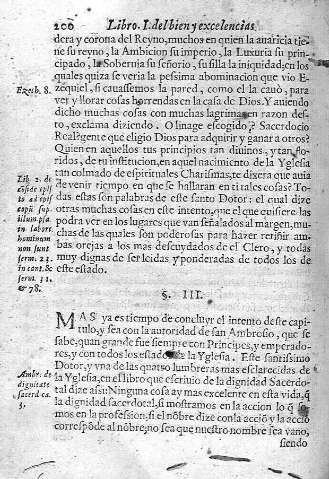 200 Libro. I. del bien y excelencias
dera y corona del Reyno, muchos en quien la auaricia tie
ne su reyno, la Ambicion su imperio, la Luxuria su prin-
cipado, la Soberuia su señorio, su silla la iniquidad: en los
quales quiza se veria la pessima abominacion que vio E-
Ezech. 8.
zequiel, si cauassemos la pared, como el la cauò, para
ver y llorar cosas horrendas en la casa de Dios. Y auiendo
dicho muchas cosas con muchas lagrimas en razon des-
to, exclama diziendo. O linage escogido, Sacerdocio
Real, gente que eligio Dios para adquirir y ganar a otros?
Quien en aquellos tus principios tan diuinos, y tan flo-
ridos, de tu institucion, en aquel nacimiento de la Yglesia
tan colmado de espirituales Charismas, te dixera que auia
de venir tiempo en que se hallaran en ti tales cosas? To-
das estas son palabras de este santo Dotor: el qual dize
otras muchas cosas en este intento, que el que quisiere las
podra ver en los lugares que van señalados al margen, mu-
chas de las quales son poderosas para hazer retiñir am-
bas orejas a los mas descuydados de el Clero, y todas
muy dignas de ser leidas y ponderadas de todos los de
este estado.
Lib. 2. de
Côside
ad
illum
in labore
hominum
non sunt
serm. 23.
in cant. &
serm. 31.
& 78.
§. III.
MAS ya es tiempo de concluyr el intento deste capi-
tulo, y sea con la autoridad de san Ambrosio, que se
sabe, quan grande fue siempre con Principes, y emperado-
res, y con todos los estados de la Yglesia. Este santissimo
Dotor, y vna de las quatro lumbreras mas esclarecidas de
la Yglesia, en el libro que escriuio de la dignidad Sacerdo-
Ambr. de
dignitate
sacerd. ca.
3.
tal dize assi: Ninguna cosa ay mas excelente en esta vida, q̃
la dignidad sacerdotal, si mostramos en la accion lo q̃ so
mos en la profession, si el nõbre dize con la acciõ y la acciõ
correspõde al nõbre; no sea que nuestro nombre sea vano,
siendo